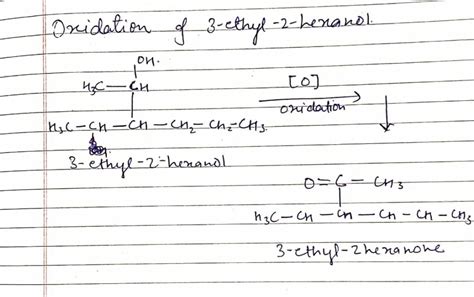 Oxidation of 3-ethyl-2-hexanol.
OH.
H₃C—CH
[O]
oxidation
H₃C—CH—CH—CH₂—CH₂—CH₃
3-ethyl-2-hexanol
O=C—CH₃
H₃C—CH—CH—CH—CH—CH₃
3-ethyl-2hexanone